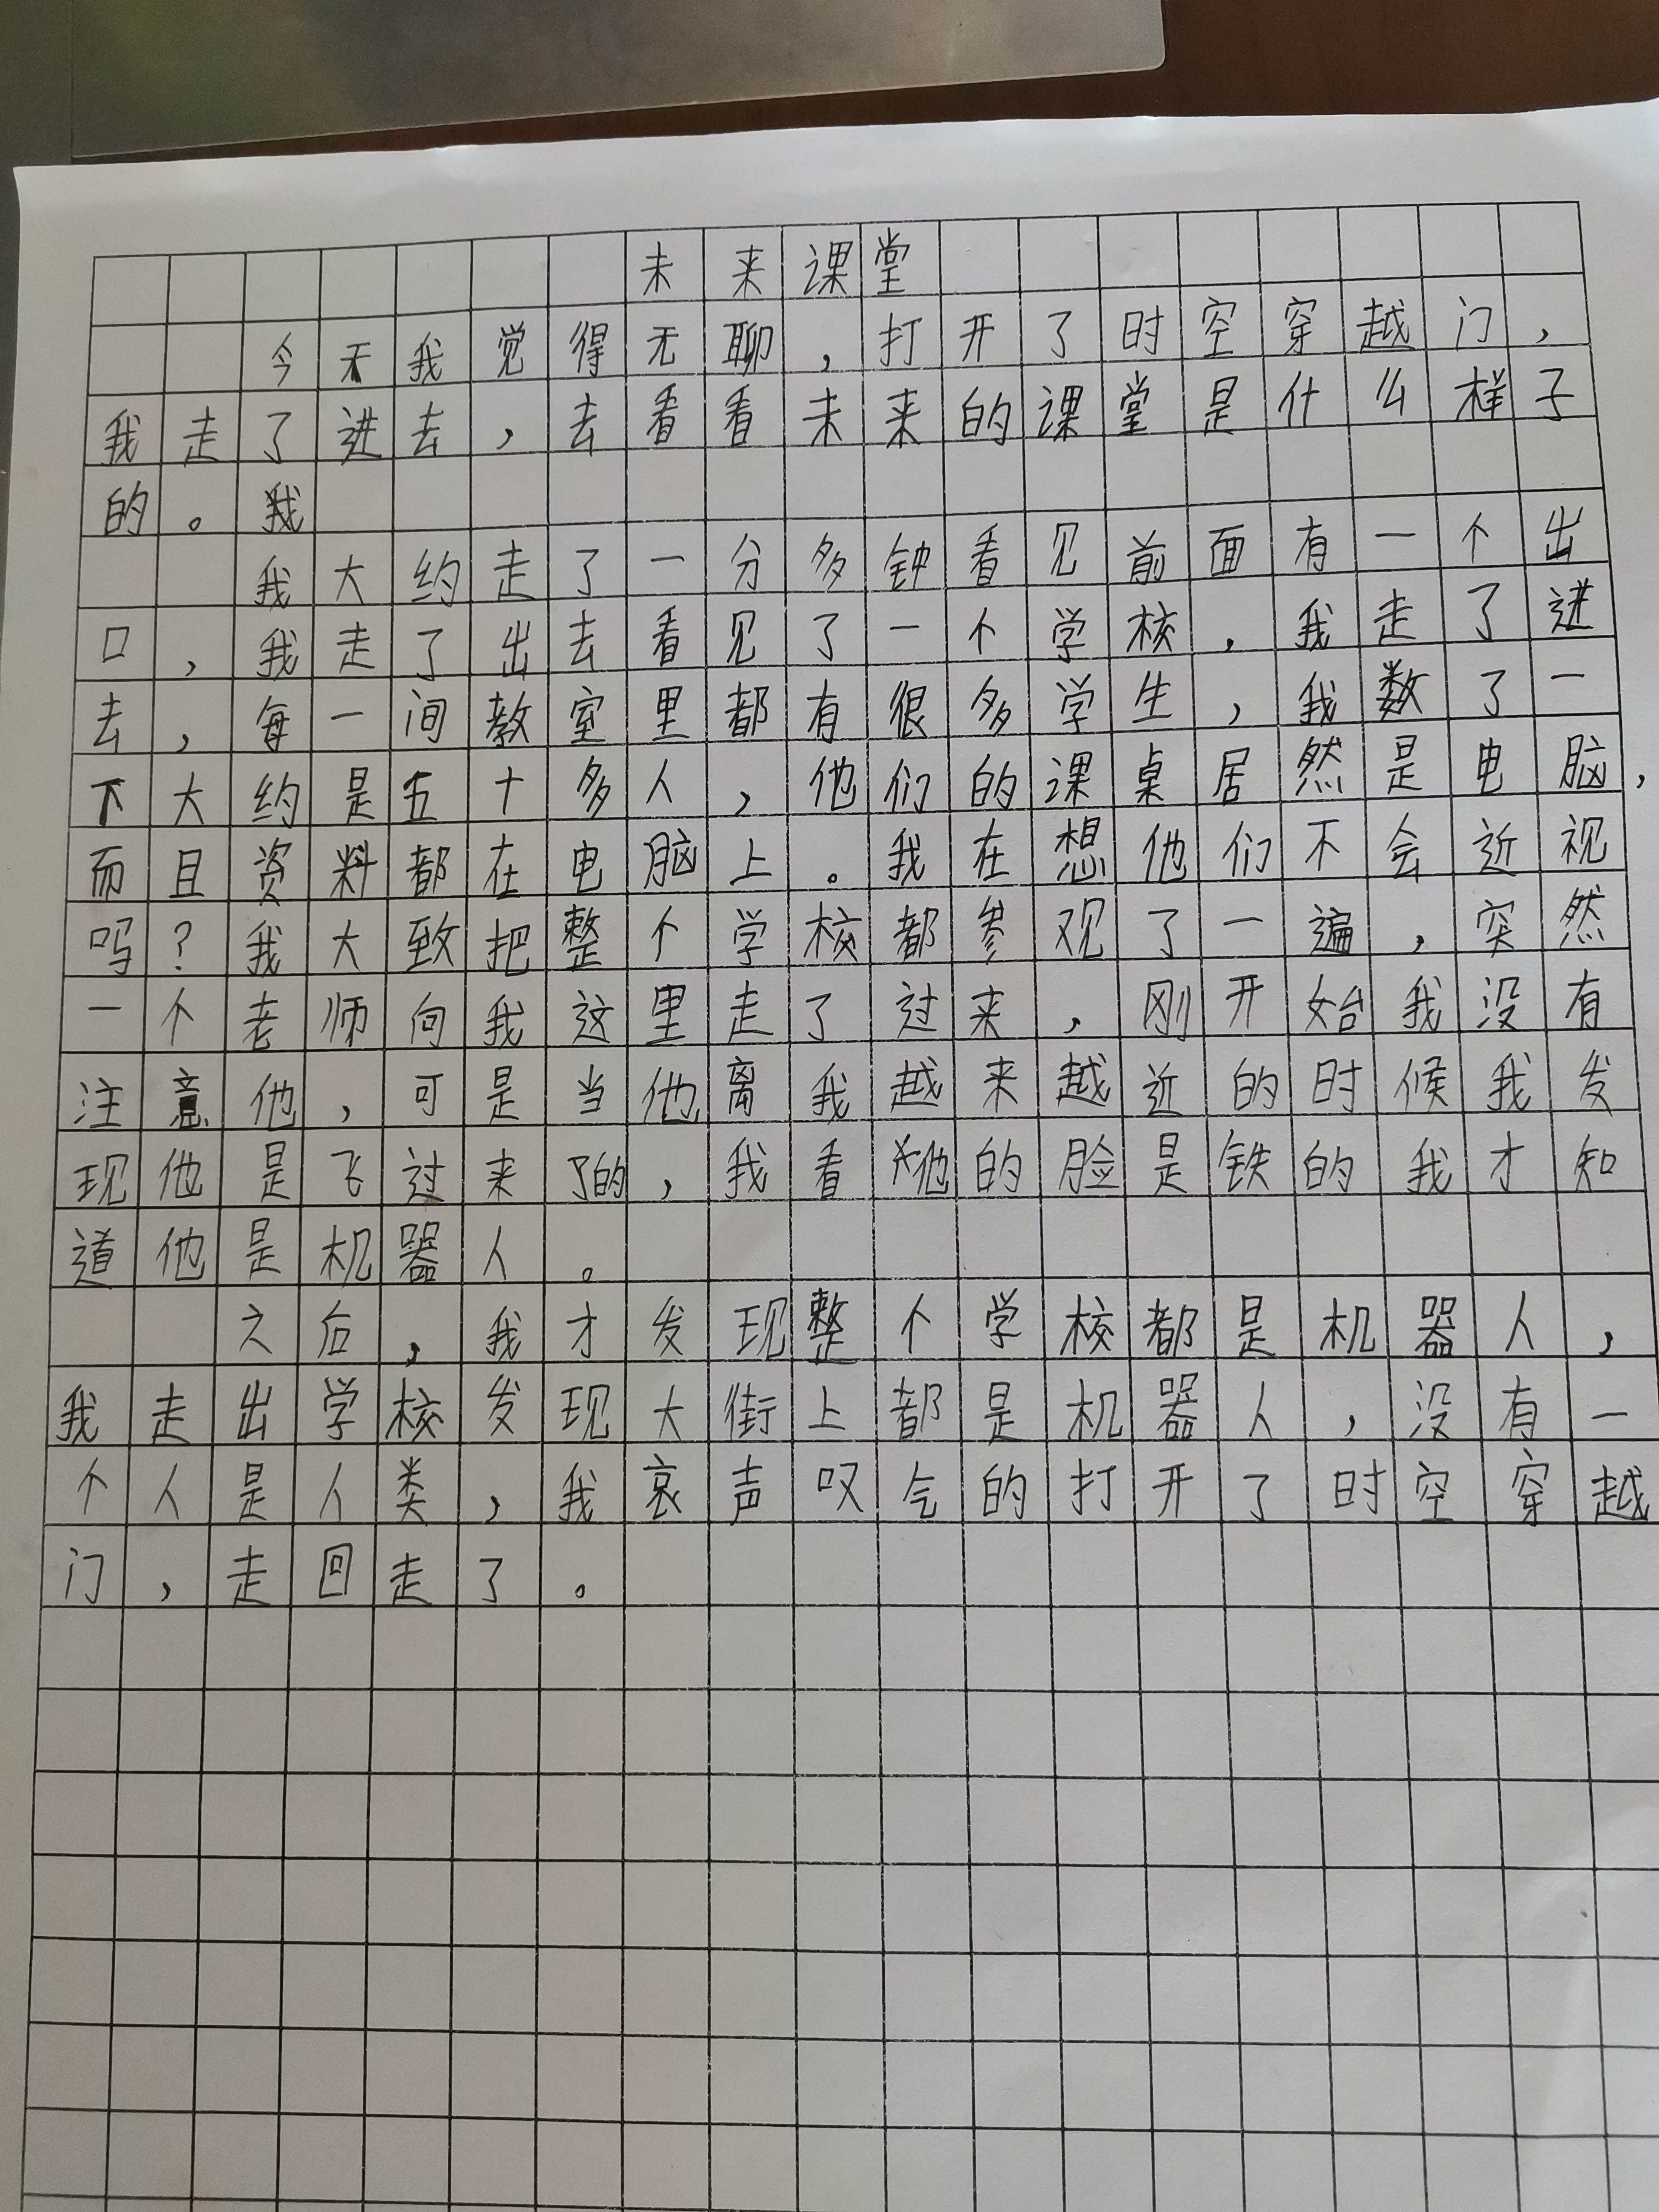 未来课堂
今天我觉得无聊，打开了时空穿越门，
我走了进去，去看看未来的课堂是什么样子
的。我
我大约走了一分多钟看见前面有一个出
口，我走了出去看见了一个学校，我走了进
去，每一间教室里都有很多学生，我数了一
下大约是五十多人，他们的课桌居然是电脑，
而且资料都在电脑上。我在想他们不会近视
吗？我大致把整个学校都参观了一遍，突然
一个老师向我这里走了过来，刚开始我没有
注意他，可是当他离我越来越近的时候我发
现他是飞过来了的，我看他的脸是铁的我才知
道他是机器人。
之后，我才发现整个学校都是机器人，
我走出学校发现大街上都是机器人，没有一
个人是人类，我哀声叹气的打开了时空穿越
门，走回走了。